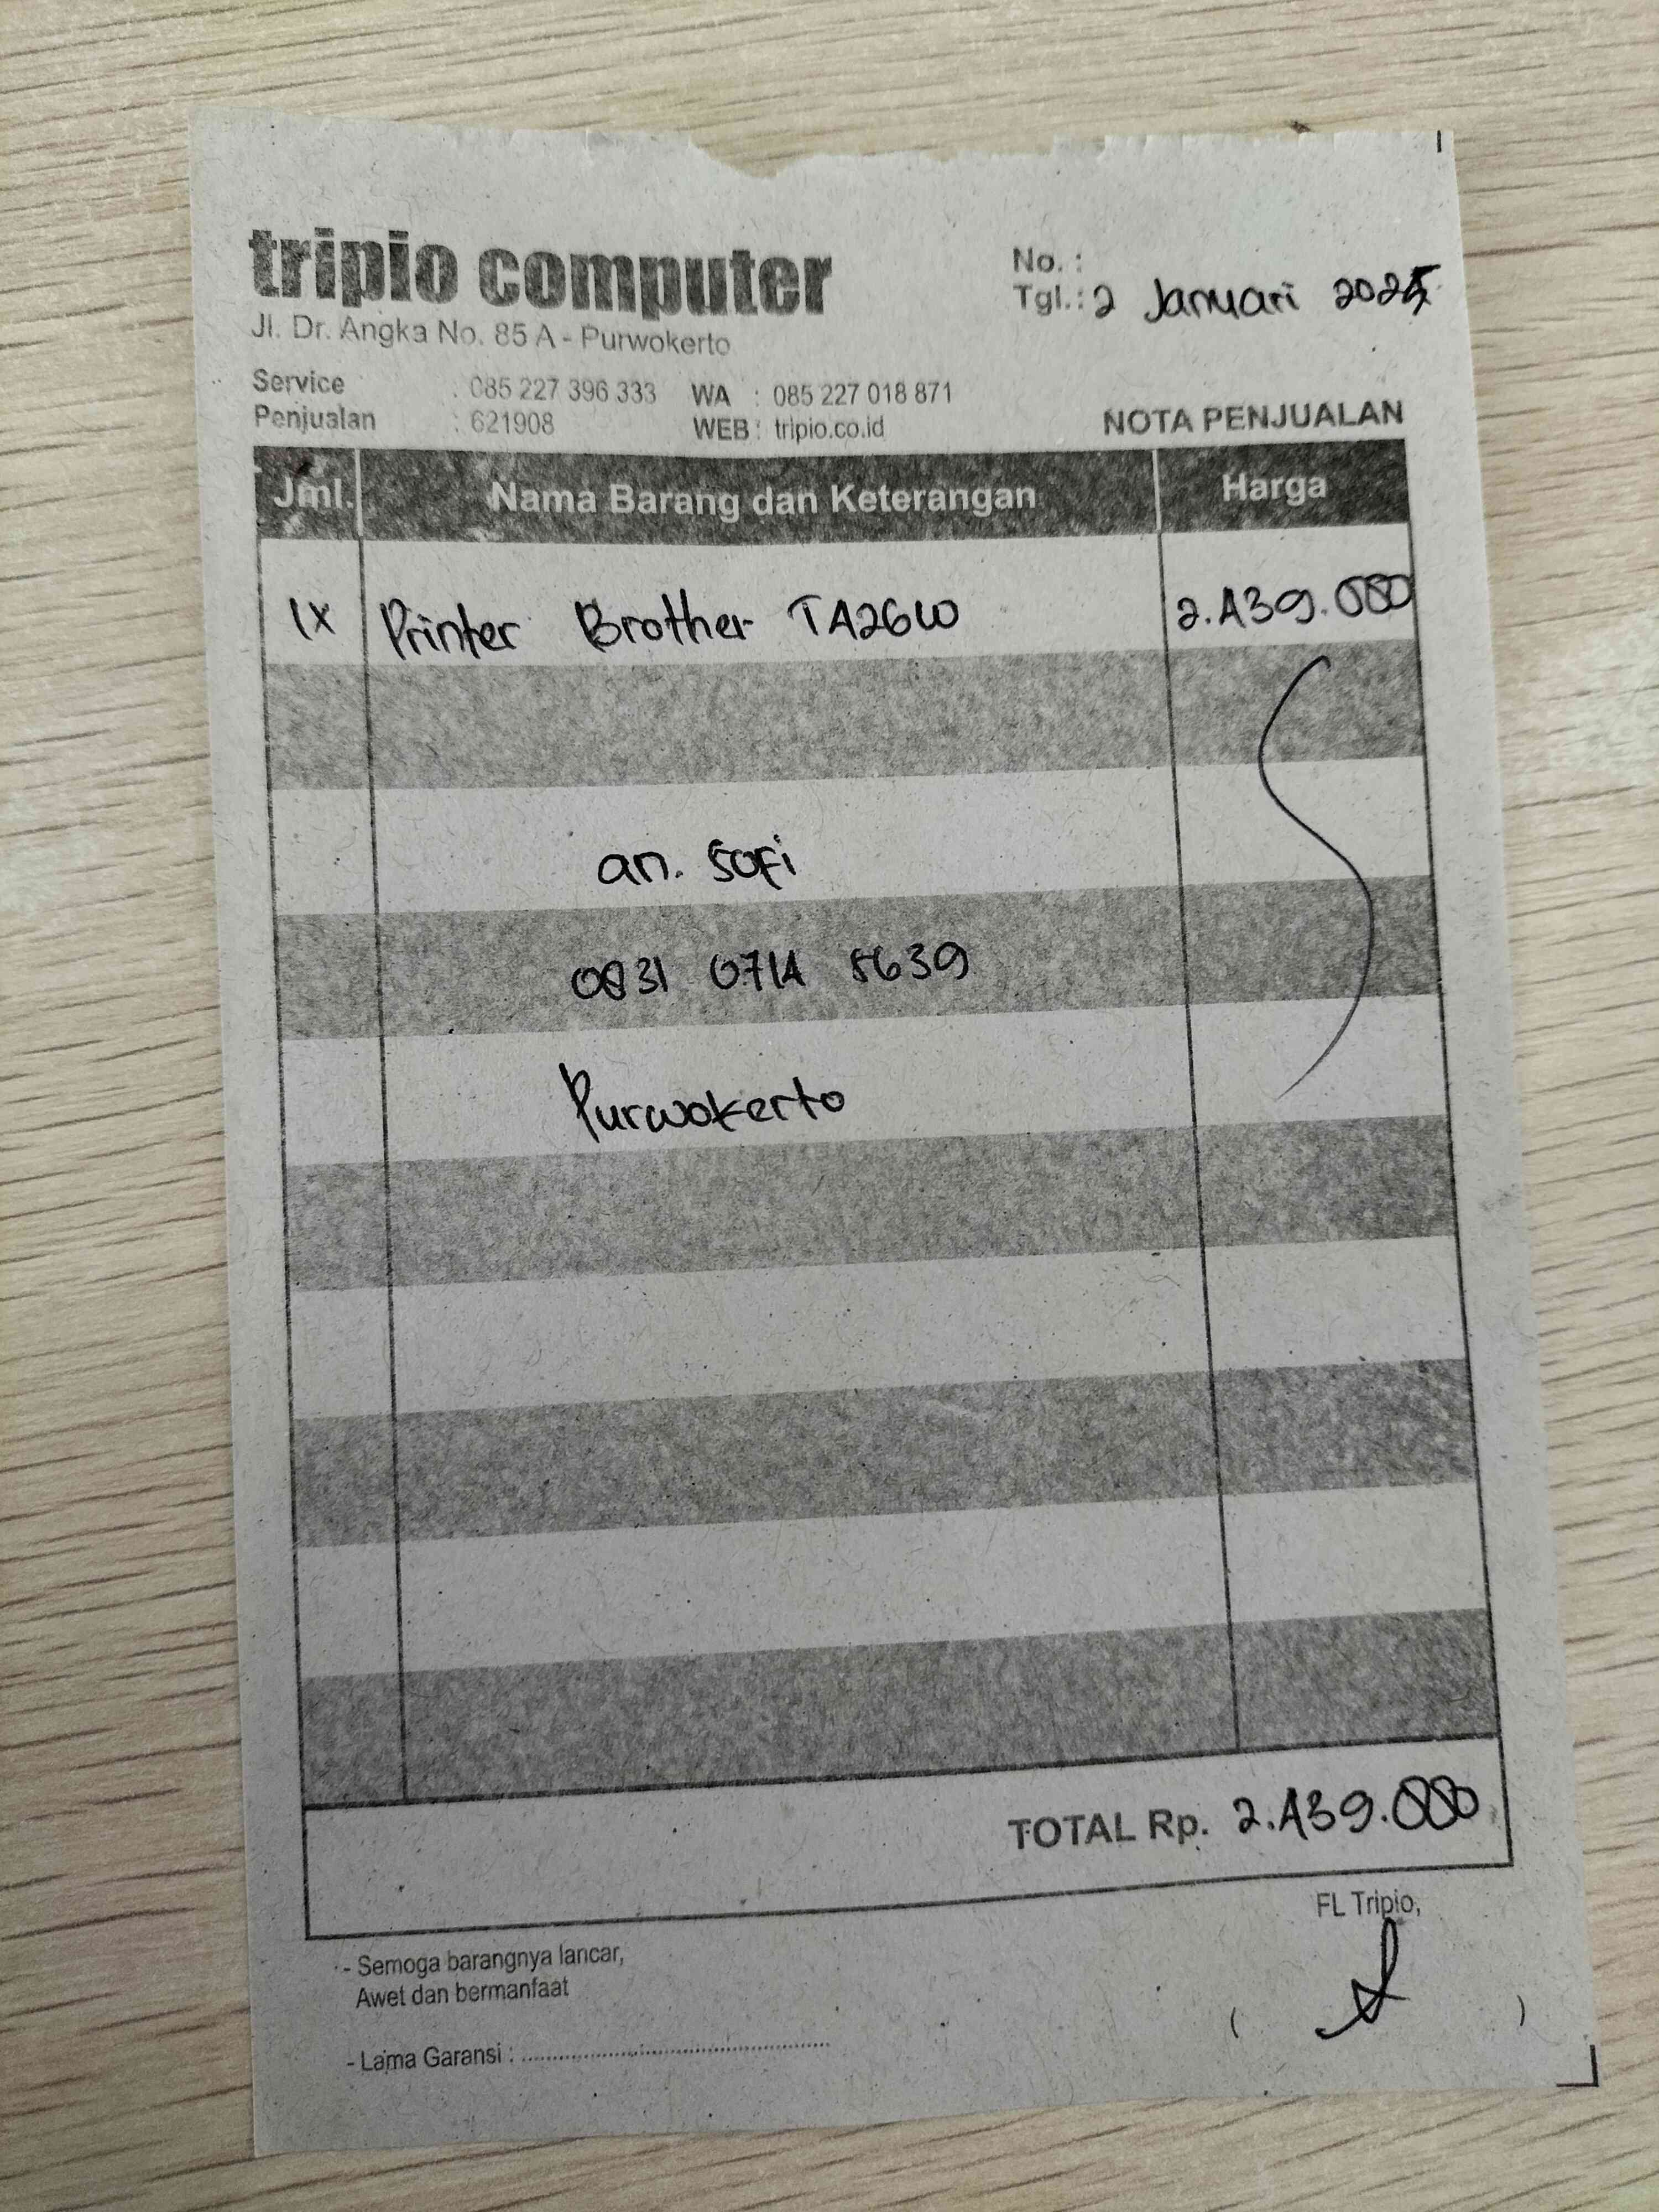 tripio computer
Jl. Dr. Angka No. 85 A - Purwokerto
No. :
Tgl. : 2 Januari 2025
Service : 085 227 396 333 WA : 085 227 018 871
Penjualan : 621908 WEB : tripio.co.id
NOTA PENJUALAN
Jml. Nama Barang dan Keterangan Harga
1x Printer Brother T426W 2.439.000
an. Sofi
0831 0714 8639
Purwokerto
TOTAL Rp. 2.439.000
FL Tripio,
- Semoga barangnya lancar,
Awet dan bermanfaat
( )
- Lama Garansi : ........................................